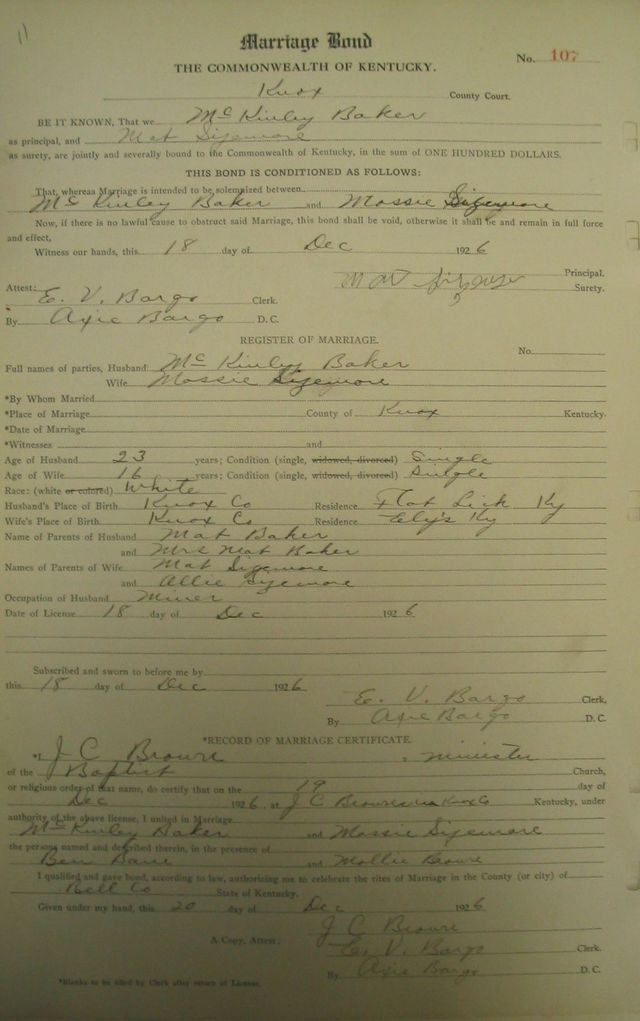 11
Marriage Bond
No. 107
THE COMMONWEALTH OF KENTUCKY.
Knox County Court.
BE IT KNOWN, That we Mc Kinley Baker
as principal, and Mat Sizemore
as surety, are jointly and severally bound to the Commonwealth of Kentucky, in the sum of ONE HUNDRED DOLLARS.
THIS BOND IS CONDITIONED AS FOLLOWS:
That, whereas Marriage is intended to be solemnized between
Mc Kinley Baker and Mossie Sizemore
Now, if there is no lawful cause to obstruct said Marriage, this bond shall be void, otherwise it shall be and remain in full force
and effect,
Witness our hands, this 18 day of Dec 1926
Principal.
Mat Sizemore Surety.
Attest:
E. V. Bargo Clerk.
By Axie Bargo D. C.
REGISTER OF MARRIAGE.
No.
Full names of parties, Husband: Mc Kinley Baker
Wife Mossie Sizemore
*By Whom Married
*Place of Marriage County of Knox Kentucky.
*Date of Marriage
*Witnesses and
Age of Husband 23 years; Condition (single, widowed, divorced) Single
Age of Wife 16 years; Condition (single, widowed, divorced) Single
Race: (white or colored) White
Husband's Place of Birth Knox Co Residence Flat Lick Ky
Wife's Place of Birth Knox Co Residence Ely's Ky
Name of Parents of Husband Mat Baker
and Mrs Mat Baker
Names of Parents of Wife Mat Sizemore
and Allie Sizemore
Occupation of Husband Miner
Date of License 18 day of Dec 1926
Subscribed and sworn to before me by
this 18 day of Dec 1926
E. V. Bargo Clerk,
By Axie Bargo D. C.
*RECORD OF MARRIAGE CERTIFICATE.
*I, J C Browne, minister
of the Baptist Church,
or religious order of that name, do certify that on the 19 day of
Dec 1926, at J C Brownes in Knox Co Kentucky, under
authority of the above license, I united in Marriage
Mc Kinley Baker and Mossie Sizemore
the persons named and described therein, in the presence of
Ben and Mollie Browne
I qualified and gave bond, according to law, authorizing me to celebrate the rites of Marriage in the County (or city) of
Bell Co State of Kentucky.
Given under my hand, this 20 day of Dec 1926
J C Browne
A Copy, Attest: E. V. Bargo Clerk.
By Axie Bargo D. C.
*Blanks to be filled by Clerk after return of License.